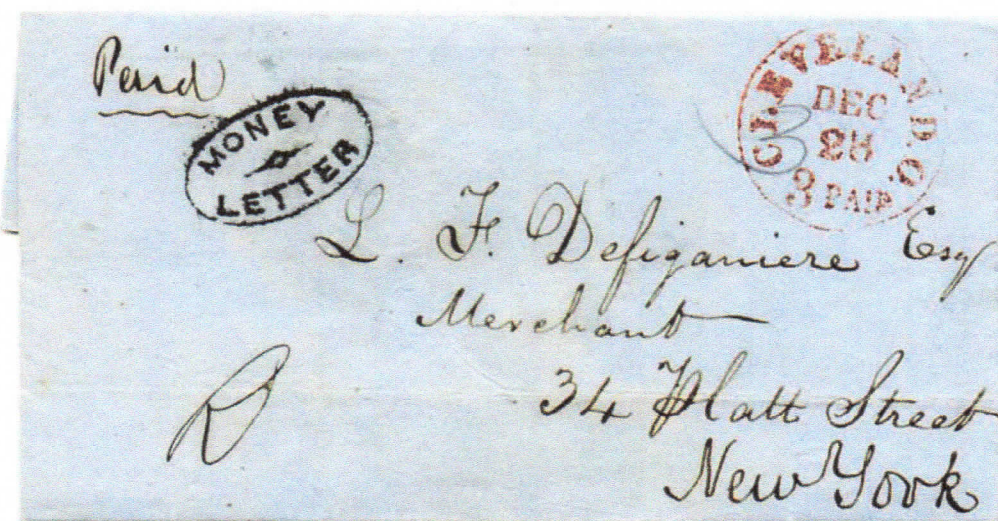 Paid
MONEY
LETTER
CLEVELAND. O.
DEC
28
3 PAID
3
L. F. Defiganiere Esqr
Merchant
34 Platt Street
New York
R